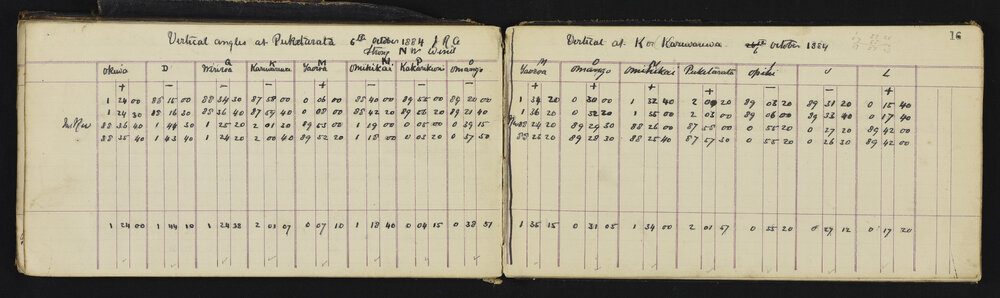 Vertical angles at Puketarata 6th October 1884 J R A
Strong N W Wind
G K M N P O
Okiwa D Wiriroa Karuwauwa Taoroa Omihikai Kakariki Omango
+ — — — + — — —
1 24 00 88 15 00 88 34 30 87 58 00 0 06 00 88 40 00 89 55 00 89 20 00
1 24 30 88 16 30 88 36 40 87 59 40 0 08 00 88 42 00 89 56 20 89 21 40
88 36 40 1 44 30 1 25 20 2 01 30 89 53 00 1 19 00 0 05 00 0 39 15
88 35 40 1 43 40 1 24 20 2 00 40 89 52 30 1 18 00 0 03 20 0 37 50
1 24 00 1 44 10 1 24 38 2 01 07 0 07 10 1 18 40 0 04 15 0 38 51
16
Vertical at K or Karuwauwa 6 October 1884
M O N L
Taoroa Omango Omihikai Puketarata Opiki J L
+ + + + — — +
1 34 20 0 30 00 1 32 40 2 00 20 89 03 20 89 31 20 0 15 40
1 36 20 0 32 20 1 35 00 2 03 00 89 06 00 89 33 40 0 17 40
88 24 20 89 29 30 88 26 00 87 58 00 0 55 00 0 27 20 89 42 00
88 23 20 89 28 30 88 25 40 87 57 30 0 55 20 0 26 30 89 42 00
1 35 15 0 31 05 1 34 00 2 01 57 0 55 20 0 29 12 0 17 20